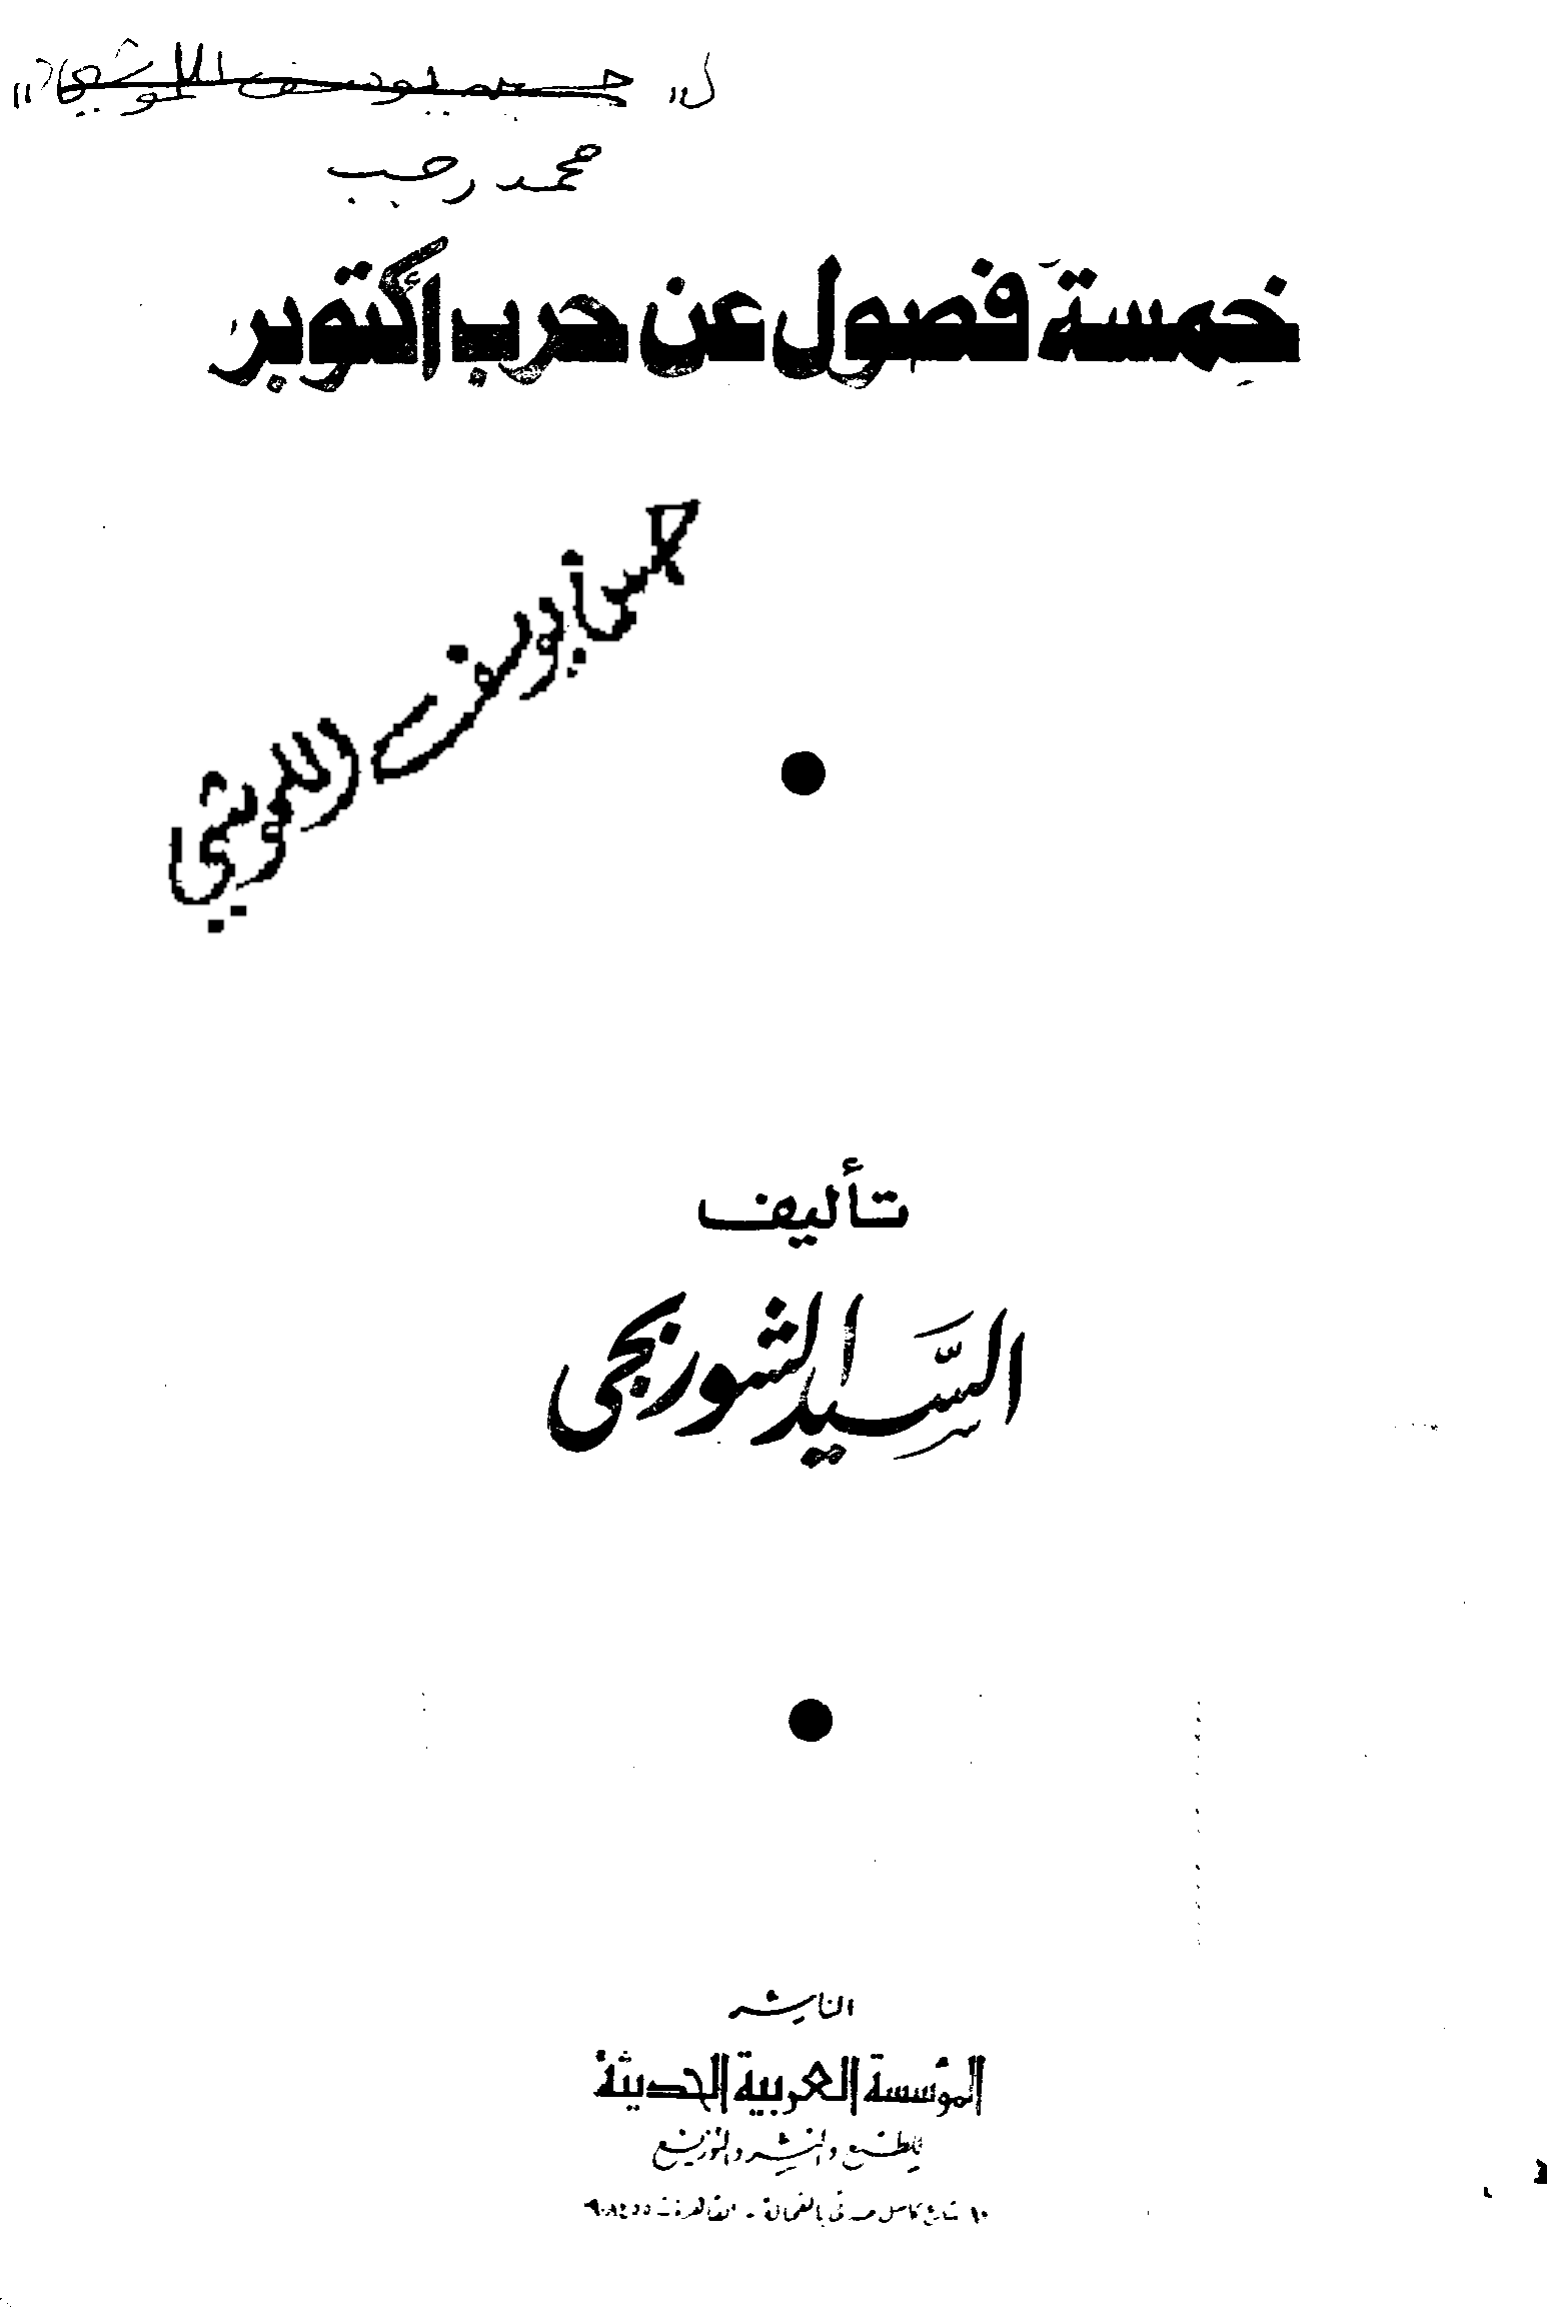 محمد رجب
خمسة فصول عن حرب أكتوبر
يوسف اللوشي
تأليف
السيد الشوربجى
الناشر
المؤسسة العربية الحديثة
للطبع والنشر والتوزيع
١٠ شارع كامل صدقى بالفجالة - القاهرة ت ٩٠٨٤٥٥